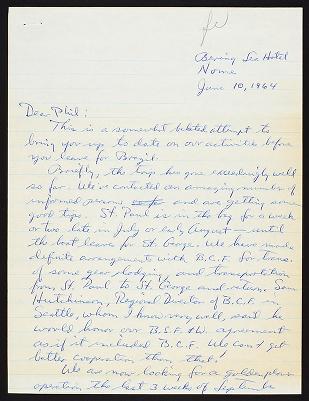 Bering Sea Hotel
Nome
June 10, 1964
Dear Phil:
This is a somewhat belated attempt to
bring you up to date on our activities before
you leave for Brazil.
Briefly, the trip has gone exceedingly well
so far. We've contacted an amazing number of
informed persons and are getting some
good tips. St. Paul is in the bag for a week
or two late in July or early August — until
the boat leaves for St. George. We have made
definite arrangements with B.C.F. for trans.
of some gear, lodging, and transportation
from St. Paul to St. George and return. Sam
Hutchinson, Regional Director of B.C.F. in
Seattle, whom I know very well, said he
would honor our B.S.F.&W. agreement
as if it included B.C.F. We can't get
better cooperation than that!
We are now looking for a golden plover
operation the last 3 weeks of September